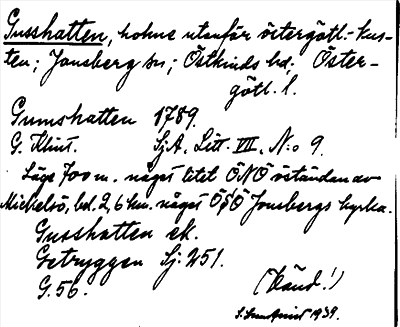 Gusshatten, holme utanför östergötl.-kus-
ten; Jonsberg sn; Östkinds hd; Öster-
götl. l.
Gumshatten 1789.
G. Klint. Sj.A. Litt. VII. N:o 9.
Läge 700 m. något litet ÖNÖ östandan av
Mickelsö, bel. 2,6 km. något ÖSÖ Jonsbergs kyrka.
Gusshatten ek.
Getryggen Sj: 251.
G. 56. (Känd!)
1939.